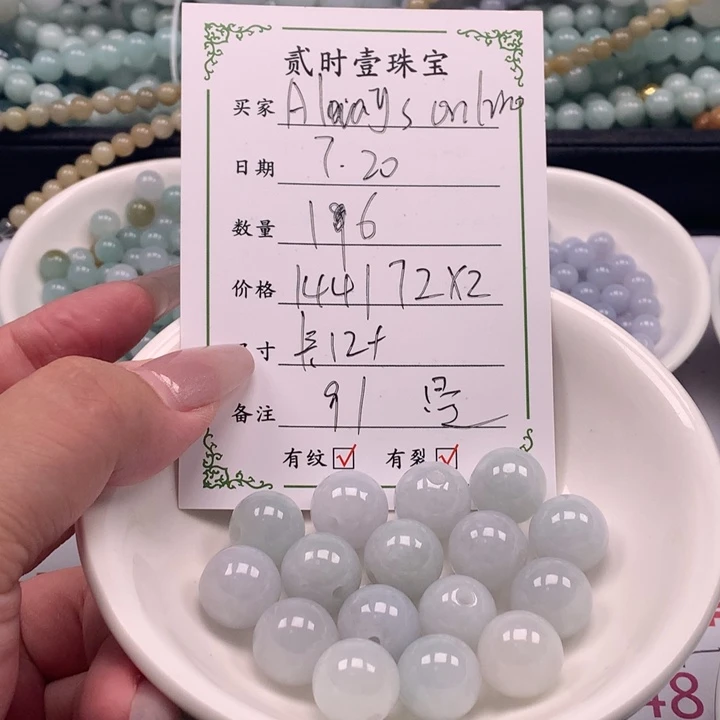 贰时壹珠宝
买家 Always online
日期 7.20
数量 196
价格 144 | 72X2
寸 长12+
备注 91
有纹 ☑ 有裂 ☑
48